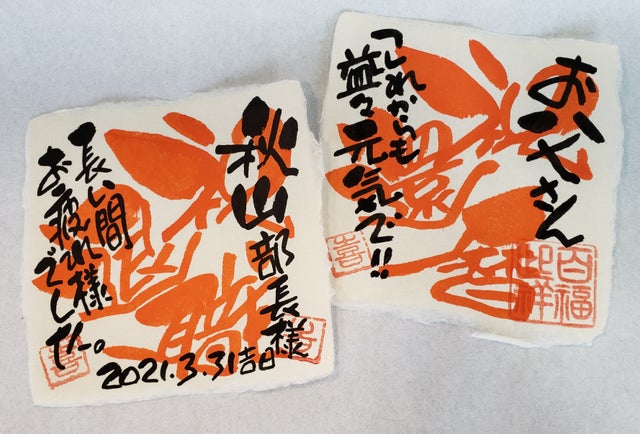 秋山部長様
長い間
お疲れ様
でした。
2021.3.31吉日
喜
お父さん
これからも
益々元気で!!
還
喜
百福